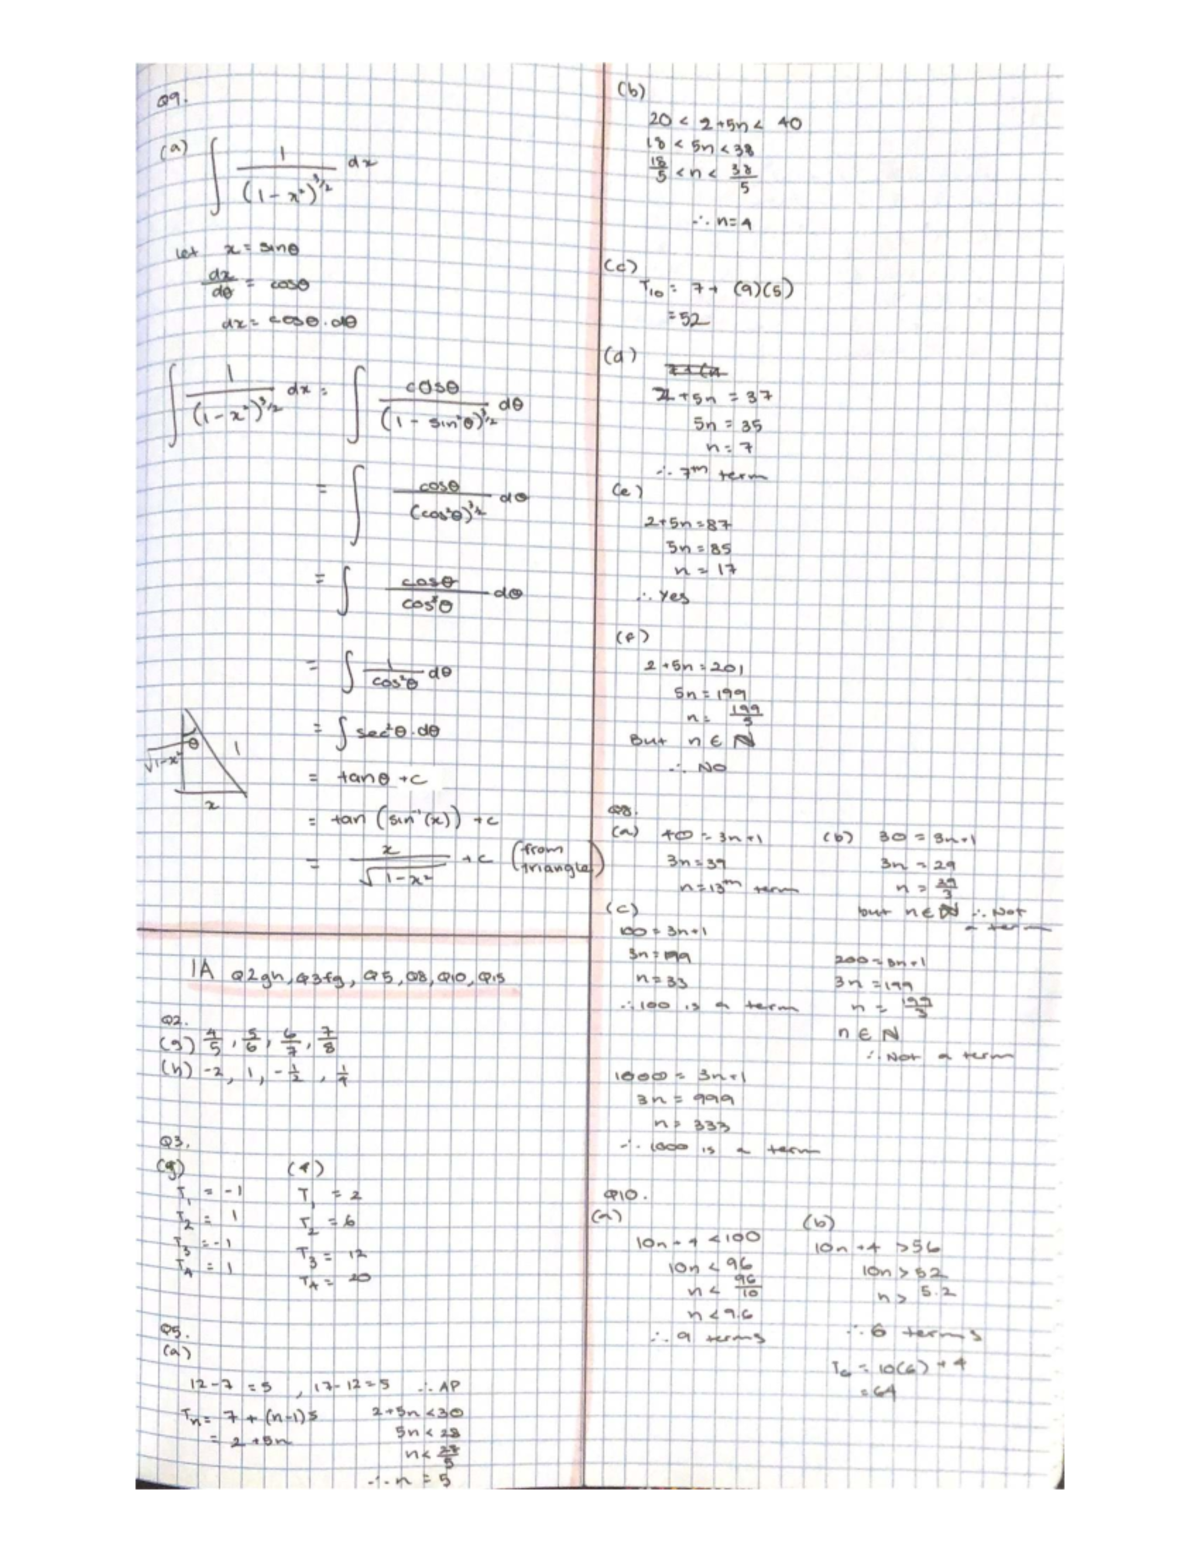 Q9.
(a) ∫ 1/(1-x²)^3/2 dx
let x = sinθ
dx/dθ = cosθ
dx = cosθ.dθ
∫ 1/(1-x²)^3/2 dx = ∫ cosθ/(1-sin²θ)^3/2 dθ
= ∫ cosθ/(cos²θ)^3/2 dθ
= ∫ cosθ/cos³θ dθ
= ∫ 1/cos²θ dθ
= ∫ sec²θ.dθ
= tanθ +c
= tan(sin⁻¹(x)) +c
= x/√1-x² +c (from triangle)
θ
1
√1-x²
x
1A Q2gh, Q3fg, Q5, Q8, Q10, Q15
Q2.
(g) 4/5, 5/6, 6/7, 7/8
(h) -2, 1, -1/2, 1/4
Q3.
(g) (f)
T₁ = -1 T₁ = 2
T₂ = 1 T₂ = 6
T₃ = -1 T₃ = 12
T₄ = 1 T₄ = 20
Q5.
(a)
12-7 = 5, 17-12=5 ∴ AP
Tn = 7 + (n-1)5 2+5n<30
= 2+5n 5n < 28
n < 28/5
∴ n = 5
(b)
20 < 2+5n < 40
18 < 5n < 38
18/5 < n < 38/5
∴ n=4
(c)
T₁₀ = 7+ (9)(5)
= 52
(d)
2+5n = 37
5n = 35
n = 7
∴ 7th term
(e)
2+5n=87
5n = 85
n = 17
∴ Yes
(f)
2+5n=201
5n = 199
n = 199/5
But n ∈ N
∴ No
Q8.
(a) 40 = 3n+1 (b) 30 = 3n+1
3n = 39 3n = 29
n=13th term n = 29/3
but n∈N ∴ Not a term
(c)
100 = 3n+1 200=3n+1
n=33 3n =199
∴ 100 is a term n = 199/3
n ∈ N
∴ Not a term
1000 = 3n+1
3n = 999
n = 333
∴ 1000 is a term
Q10.
(a) (b)
10n+4 <100 10n+4 >56
10n < 96 10n > 52
n < 96/10 n > 5.2
n < 9.6
∴ 9 terms ∴ 6 terms
T₆ = 10(6) + 4
= 64